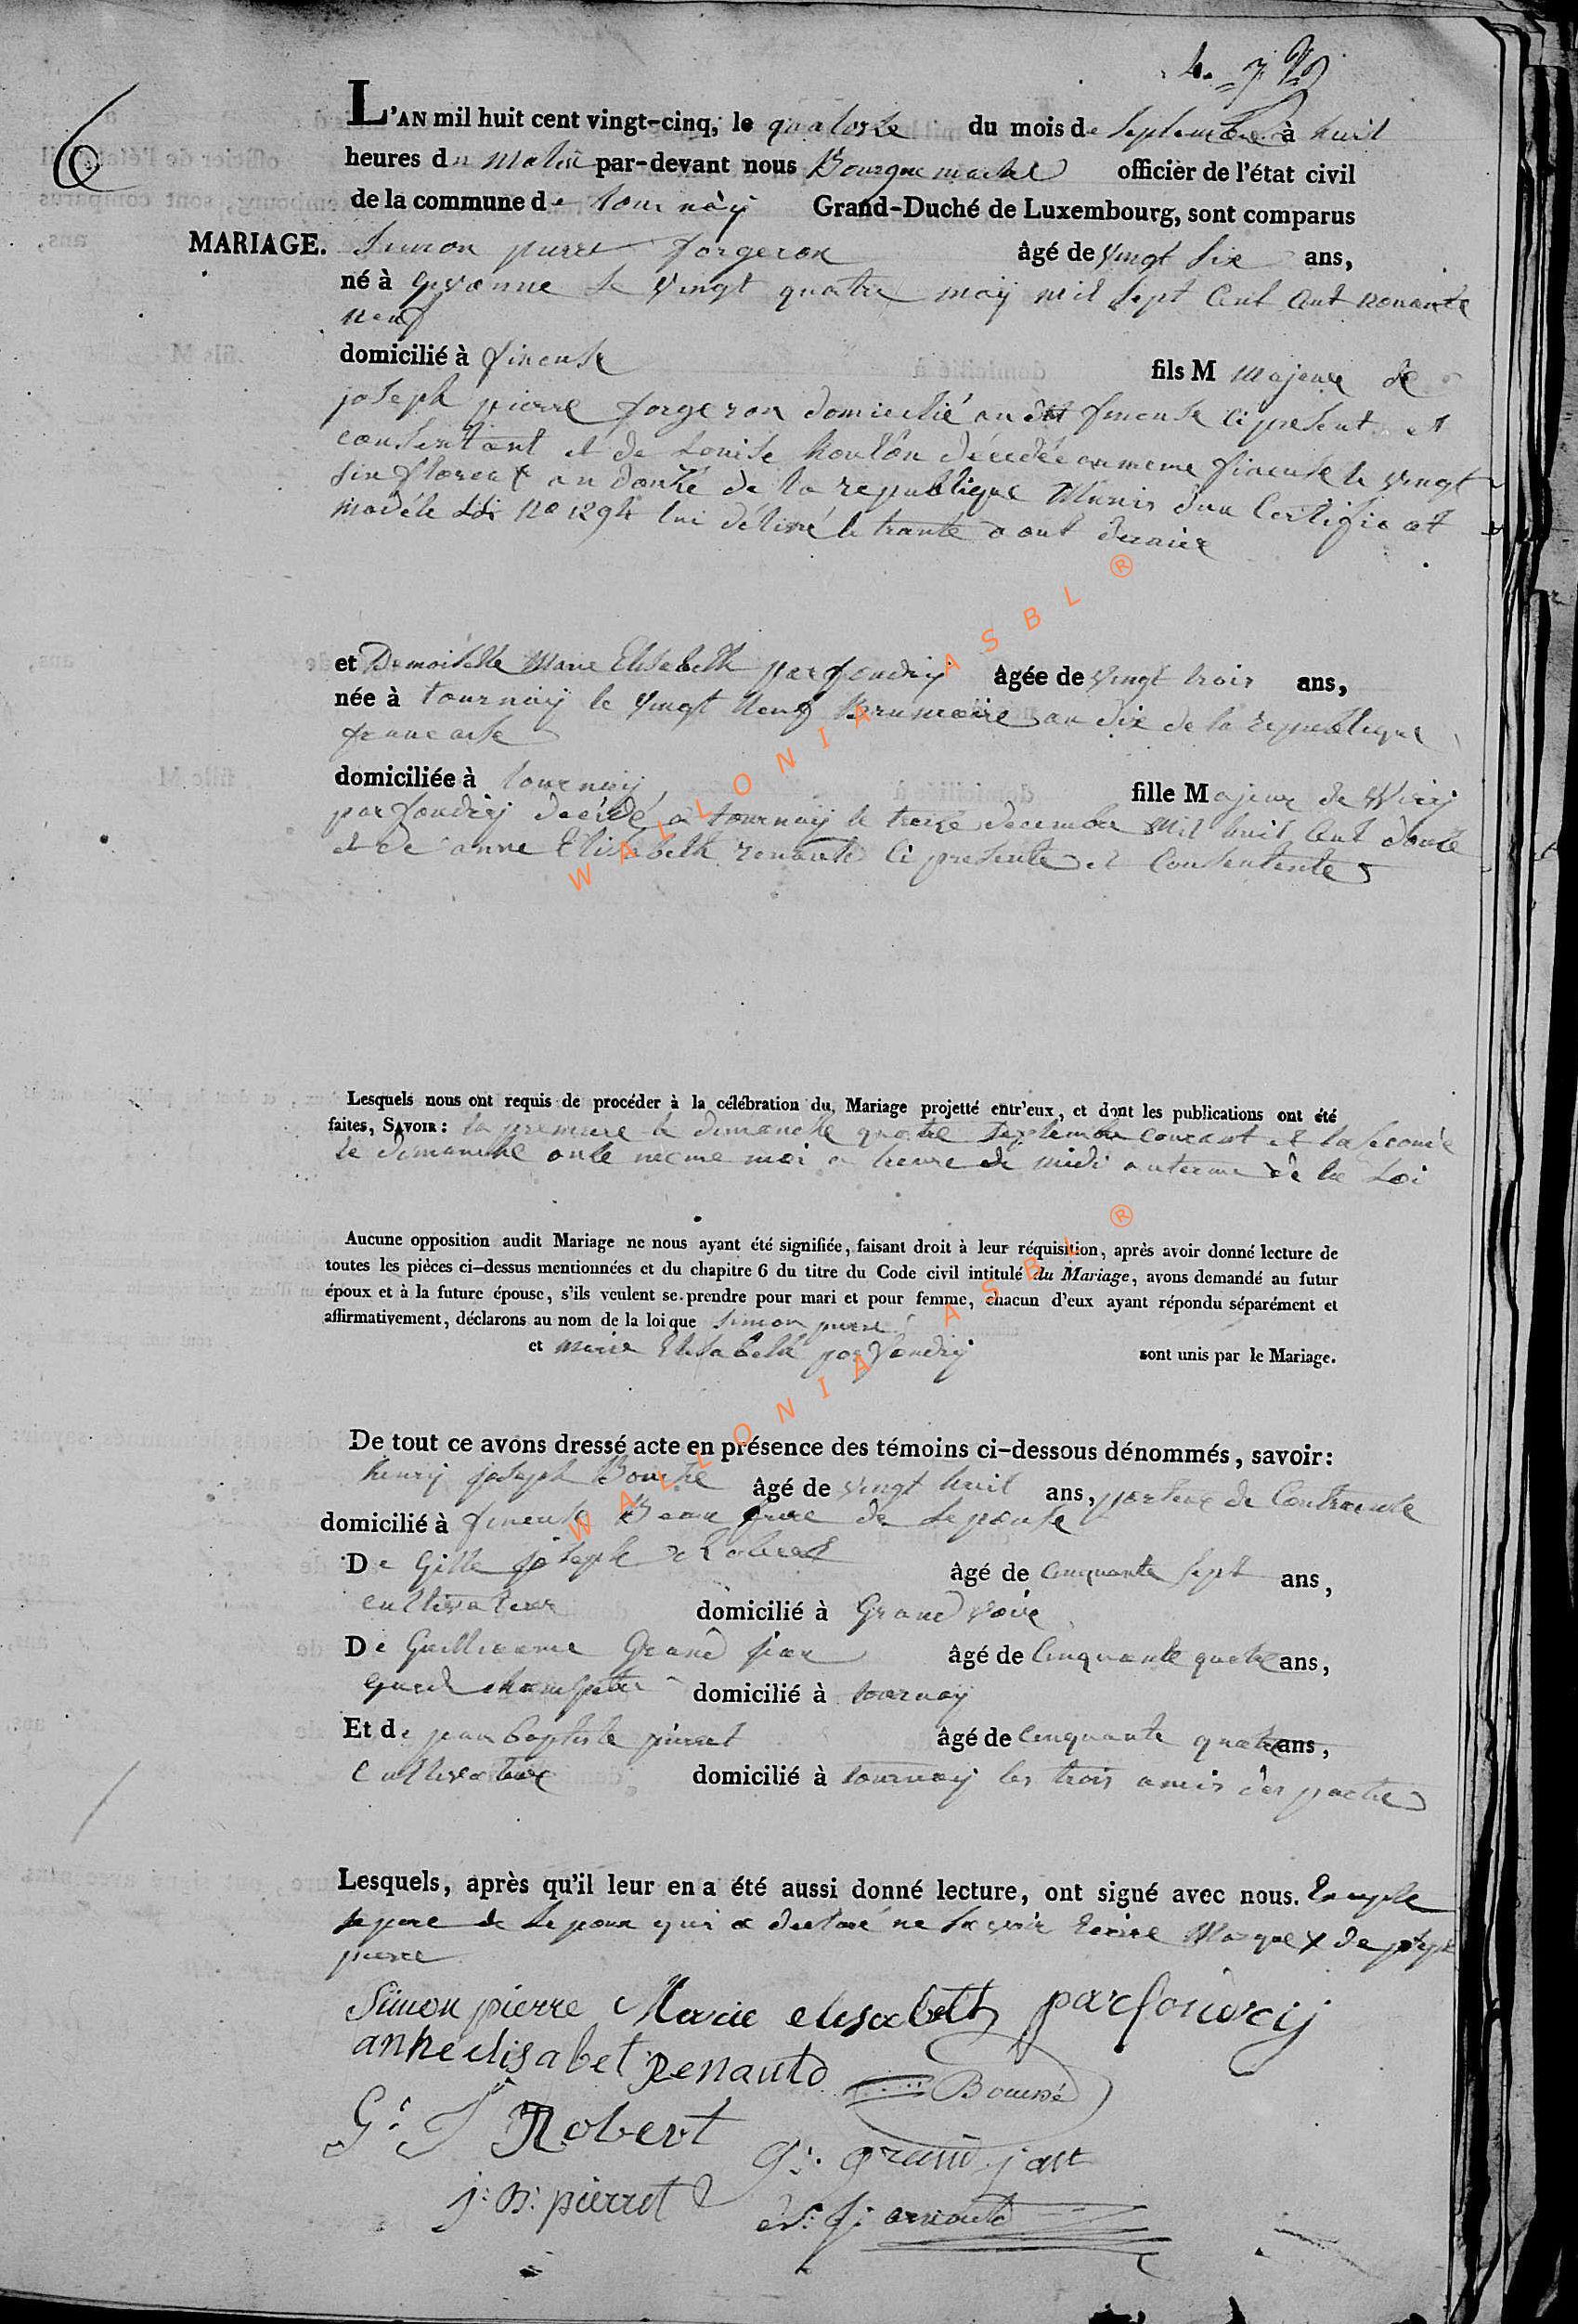 6
L'AN mil huit cent vingt-cinq, le quatorze du mois de Septembre à huit
heures du Matin par-devant nous Bourguemaitre officier de l'état civil
de la commune de tournay Grand-Duché de Luxembourg, sont comparus
MARIAGE. Simon pierre forgeron âgé de vingt Six ans,
né à le vingt quatre may mil Sept Cent nonante
neuf
domicilié à fineuse fils M majeur de
joseph pierre forgeron domicilié au dit fineuse ci present et
consentant et de Louise décédée au meme fineuse le vingt
Six floreal an douze de la republique Munis d'un Certificat
modéle No 1294 lui délivré le trante aout dernier
et Demoiselle Marie Elisabeth parfondry âgée de vingt trois ans,
née à tournay le vingt neuf Brumaire an dix de la republique
francaise
domiciliée à tournay fille Majeur de
parfondry décédé a tournay le treize decembre mil huit Cent douze
et de anne Elisabeth renauld ci presente et Consentente
Lesquels nous ont requis de procéder à la célébration du Mariage projetté entr'eux, et dont les publications ont été
faites, SAVOIR : la premiere le dimanche quatre Septembre courant et la seconde
le dimanche onze meme moi a heure de midi au terme de la Loi
Aucune opposition audit Mariage ne nous ayant été signifiée, faisant droit à leur réquisition, après avoir donné lecture de
toutes les pièces ci-dessus mentionnées et du chapitre 6 du titre du Code civil intitulé du Mariage, avons demandé au futur
époux et à la future épouse, s'ils veulent se prendre pour mari et pour femme, chacun d'eux ayant répondu séparément et
affirmativement, déclarons au nom de la loi que Simon pierre
et marie Elisabeth parfondry sont unis par le Mariage.
De tout ce avons dressé acte en présence des témoins ci-dessous dénommés, savoir :
henry joseph âgé de vingt huit ans, porteur de Contrainte
domicilié à fineuse Beau frere de Lepouse
De Gille joseph Robert âgé de Cinquante Sept ans,
cultivateur domicilié à Grand voir
De Guilliaume Grand jean âgé de Cinquante quatre ans,
garde champetre domicilié à tournay
Et de jean baptiste pierret âgé de Cinquante quatre ans,
Cultivateur domicilié à tournay les trois amis des partie
Lesquels, après qu'il leur en a été aussi donné lecture, ont signé avec nous. Excepté
le pere de Lepoux qui a declaré ne Savoir Ecrire Marque X de joseph
pierre
Simon pierre Marie elisabeth parfondry
anne elisabet Renauld
G. J Robert
G. grand jan
j. B. pierret
WALLONIA ASBL ®
WALLONIA ASBL ®